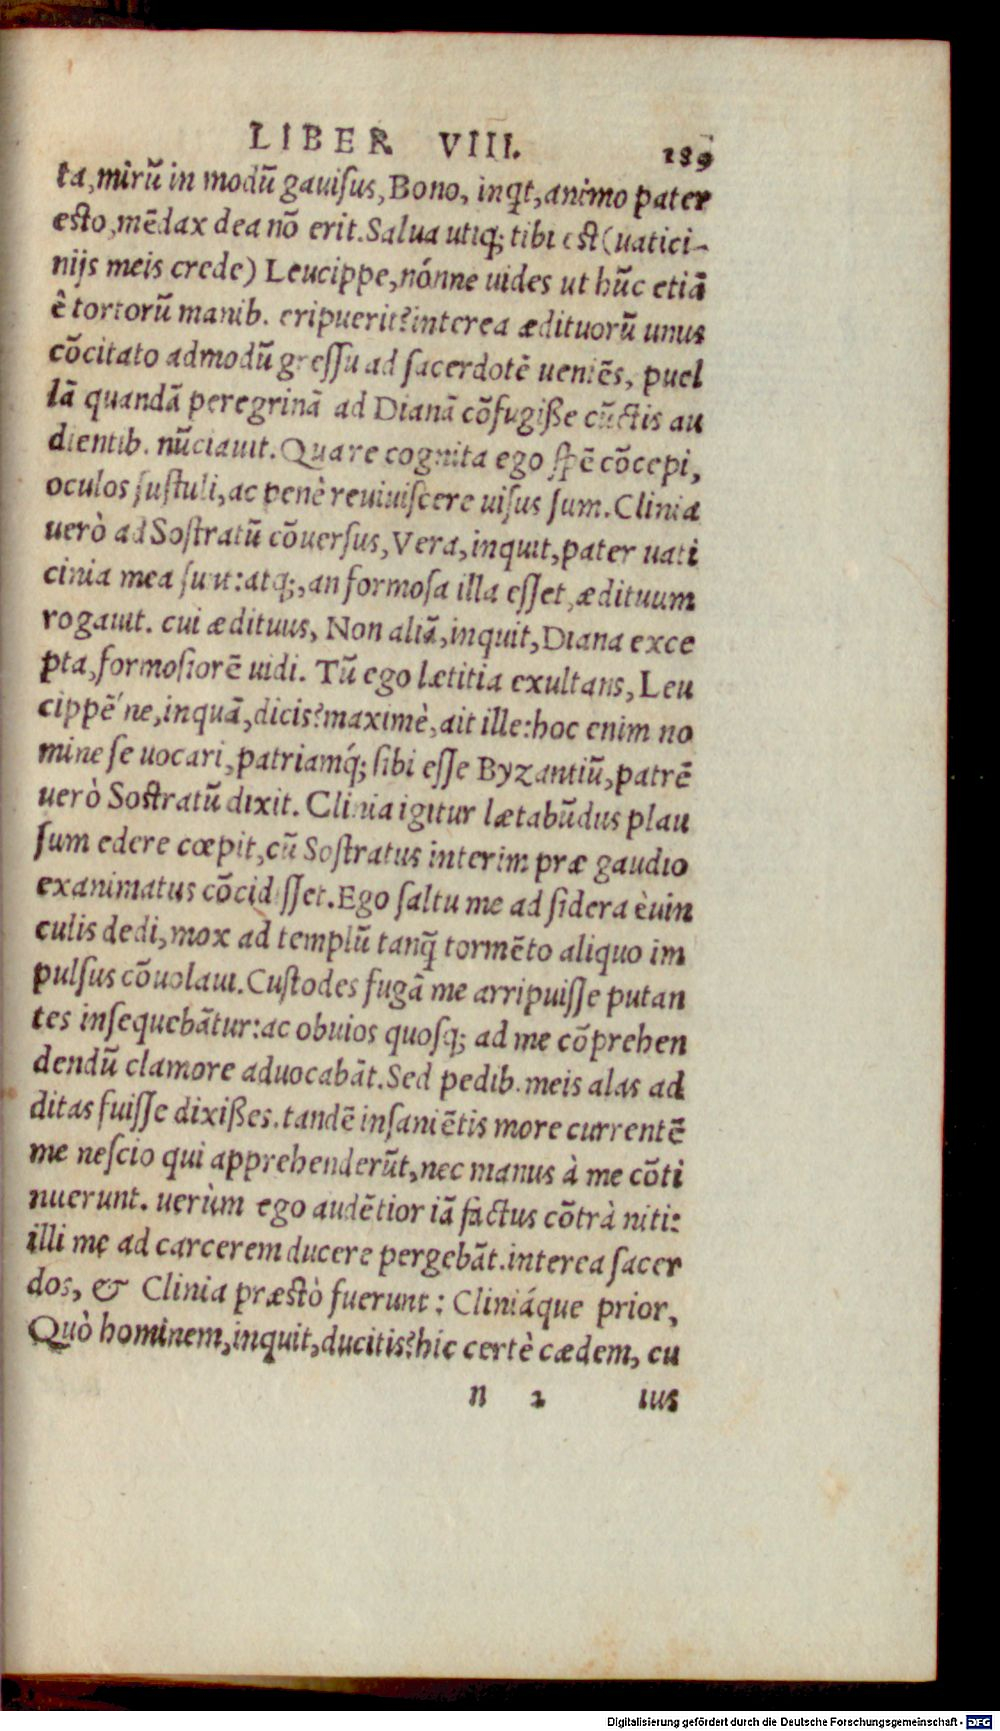 LIBER VIII. 189
ta, mirũ in modũ gauiſus, Bono, inq̃t, animo pater
eſto, mẽdax dea nõ erit. Salua utiq; tibi eſt (uatici-
nijs meis crede) Leucippe, nónne uides ut hũc etiã
ê tortorũ manib. eripuerit? interea ædituorũ unus
cõcitato admodũ greſſu ad ſacerdotẽ ueniẽs, puel
lã quandã peregrinã ad Dianã cõfugiße cũctis au
dientib. nũciauit. Qua re cognita ego ſpẽ cõcepi,
oculos ſuſtuli, ac penè reuiuiſcere uiſus ſum. Clinia
uerò ad Soſtratũ cõuerſus, Vera, inquit, pater uati
cinia mea ſunt: atq;, an formoſa illa eſſet, ædituum
rogauit. cui ædituus, Non aliã, inquit, Diana exce
pta, formoſiorẽ uidi. Tũ ego lætitia exultans, Leu
cippẽ ne, inquã, dicis? maximè, ait ille: hoc enim no
mine ſe uocari, patriamq́; ſibi eſſe Byzantiũ, patrẽ
uerò Soſtratũ dixit. Clinia igitur lætabũdus plau
ſum edere cœpit, cũ Soſtratus interim præ gaudio
exanimatus cõcidiſſet. Ego ſaltu me ad ſidera è uin
culis dedi, mox ad templũ tanq̃ tormẽto aliquo im
pulſus cõuolaui. Cuſtodes fugã me arripuiſſe putan
tes inſequebãtur: ac obuios quoſq; ad me cõprehen
dendũ clamore aduocabãt. Sed pedib. meis alas ad
ditas fuiſſe dixißes. tandẽ inſaniẽtis more currentẽ
me neſcio qui apprehenderũt, nec manus à me cõti
nuerunt. uerùm ego audẽtior iã factus cõtrà niti:
illi me ad carcerem ducere pergebãt. interea ſacer
dos, & Clinia præſtò fuerunt: Cliniáque prior,
Quò hominem, inquit, ducitis? hic certè cædem, cu
n 2 ius
Digitalisierung gefördert durch die Deutsche Forschungsgemeinschaft - DFG